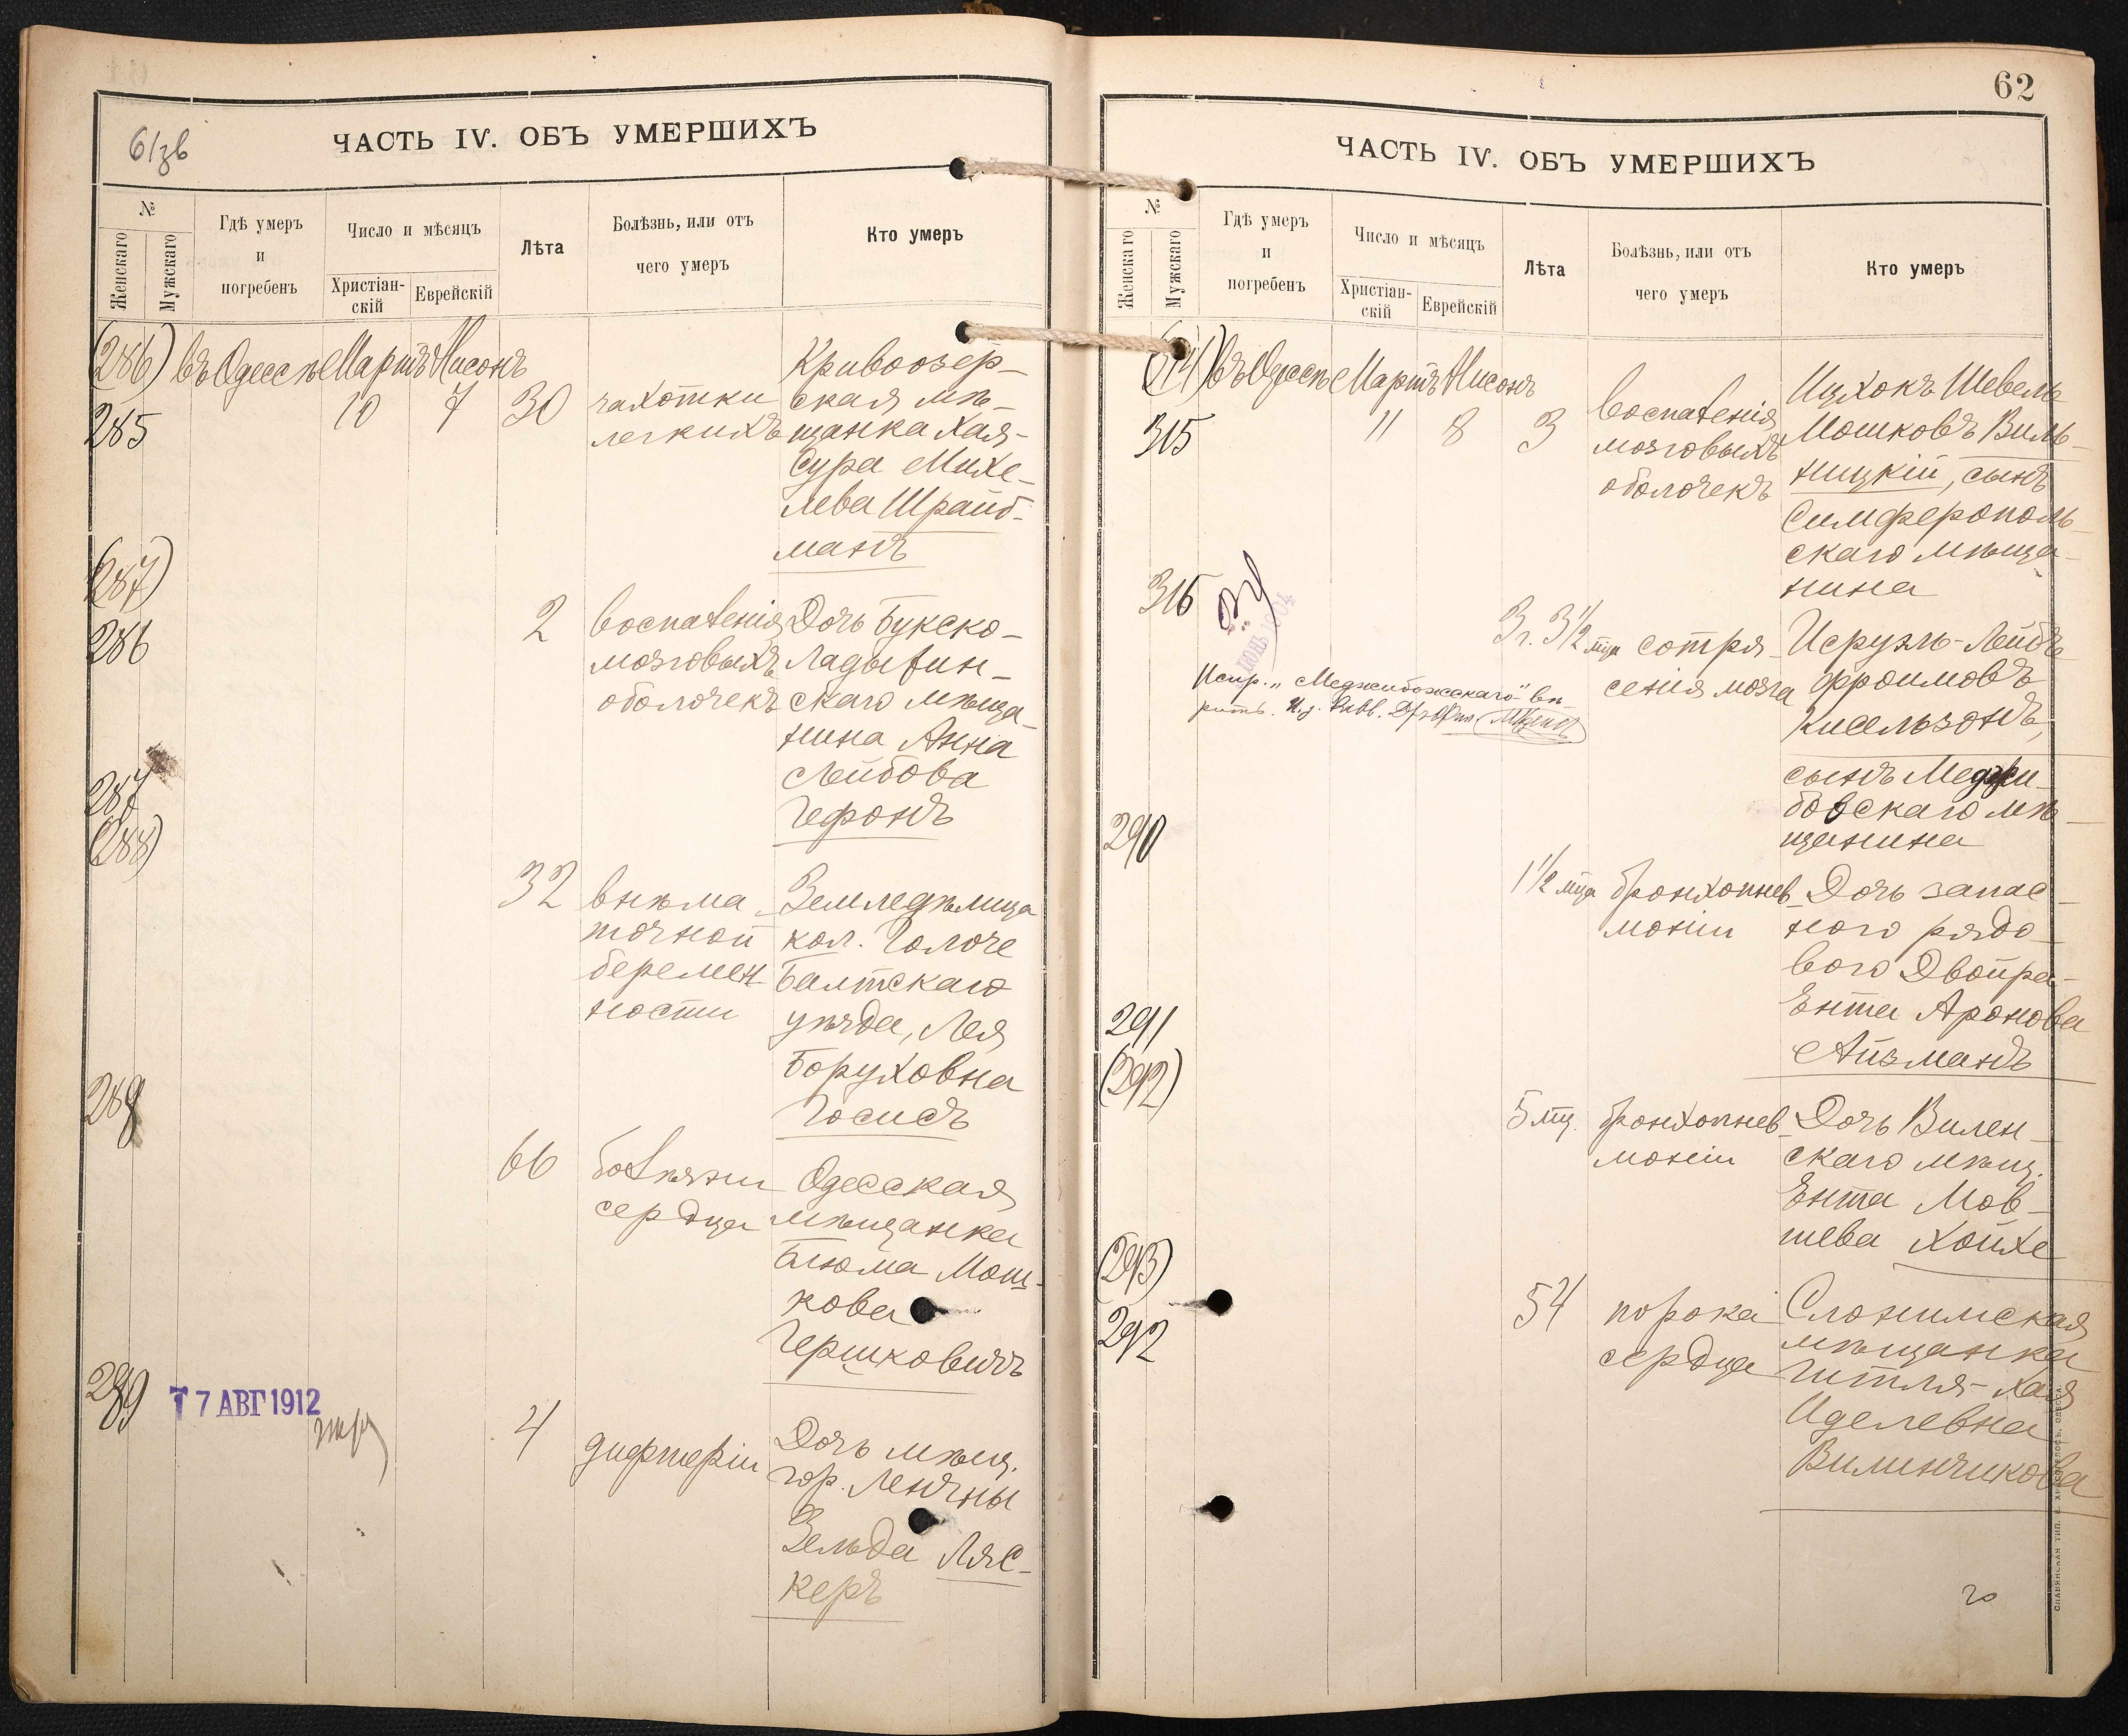 61зв
ЧАСТЬ IV. ОБЪ УМЕРШИХЪ
№
Женскаго
Мужскаго
Гдѣ умеръ
и
погребенъ
Число и мѣсяцъ
Христіан-
скій
Еврейскій
Лѣта
Болѣзнь, или отъ
чего умеръ
Кто умеръ
(286) въ Одессѣ Мартъ Нисонъ
285 10 7 30
чахотки
легкихъ
Кривоозер-
ская мѣ-
щанка Хая-
Сура Михе-
лева Шрайб-
манъ
(287)
286
2
воспаленія
мозговыхъ
оболочекъ
Дочь Букско-
скаго мѣща-
нина Анна
Лейбова
Гефонъ
287
(288)
32
внѣма-
точной
беремен-
ности
Земледѣлица
кол. Голоче
Балтскаго
уѣзда, Лея
Боруховна
Госисъ
288
66
болѣзни
сердца
Одесская
мѣщанка
Блюма Мош-
кова
Гершковичъ
289
7 АВГ 1912
4
дифтеріи
Дочь мѣщ.
гор. Ленчны
Зельда Ляс-
керъ
62
ЧАСТЬ IV. ОБЪ УМЕРШИХЪ
№
Женскаго
Мужскаго
Гдѣ умеръ
и
погребенъ
Число и мѣсяцъ
Христіан-
скій
Еврейскій
Лѣта
Болѣзнь, или отъ
чего умеръ
Кто умеръ
(314) въ Одессѣ Мартъ Нисонъ
315 11 8 3
воспаленія
мозговыхъ
оболочекъ
Ицхокъ Шевель
Мошковъ Виль-
ницкій, сынъ
Симферополь-
скаго мѣща-
нина
316
3 г. 3½ мца
сотря-
сенія мозга
Исруэль-Лейбъ
Фроимовъ
Кисельзонъ,
сынъ Меджи-
божскаго мѣ-
щанина
Испр. „Меджибожскаго" вѣ-
рить. И. д. Равв.
290
1½ мца
бронхопнев-
моніи
Дочь запас-
ного рядо-
вого Двойра-
Ента Аронова
Айзманъ
291
(292)
5 мц.
бронхопнев-
моніи
Дочь Вилен-
скаго мѣщ.
Ента Мов-
шева Хойхе
(293)
292
54
порока
сердца
Слонимская
мѣщанка
Гитля-Хая
Иделевна
Вилинчикова